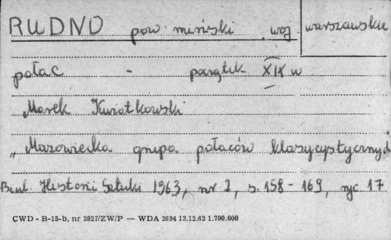 RUDNO pow miński woj warszawskie
pałac - początek XIX w
Marek Kwiatkowski
"Mazowiecka grupa pałaców klasycystycznych
Biul. Historii Sztuki 1963, nr 2, s. 158-169, ryc. 17
CWD - B-15-b, nr 2827/ZW/P — WDA 2694 13.12.62 1.700.000